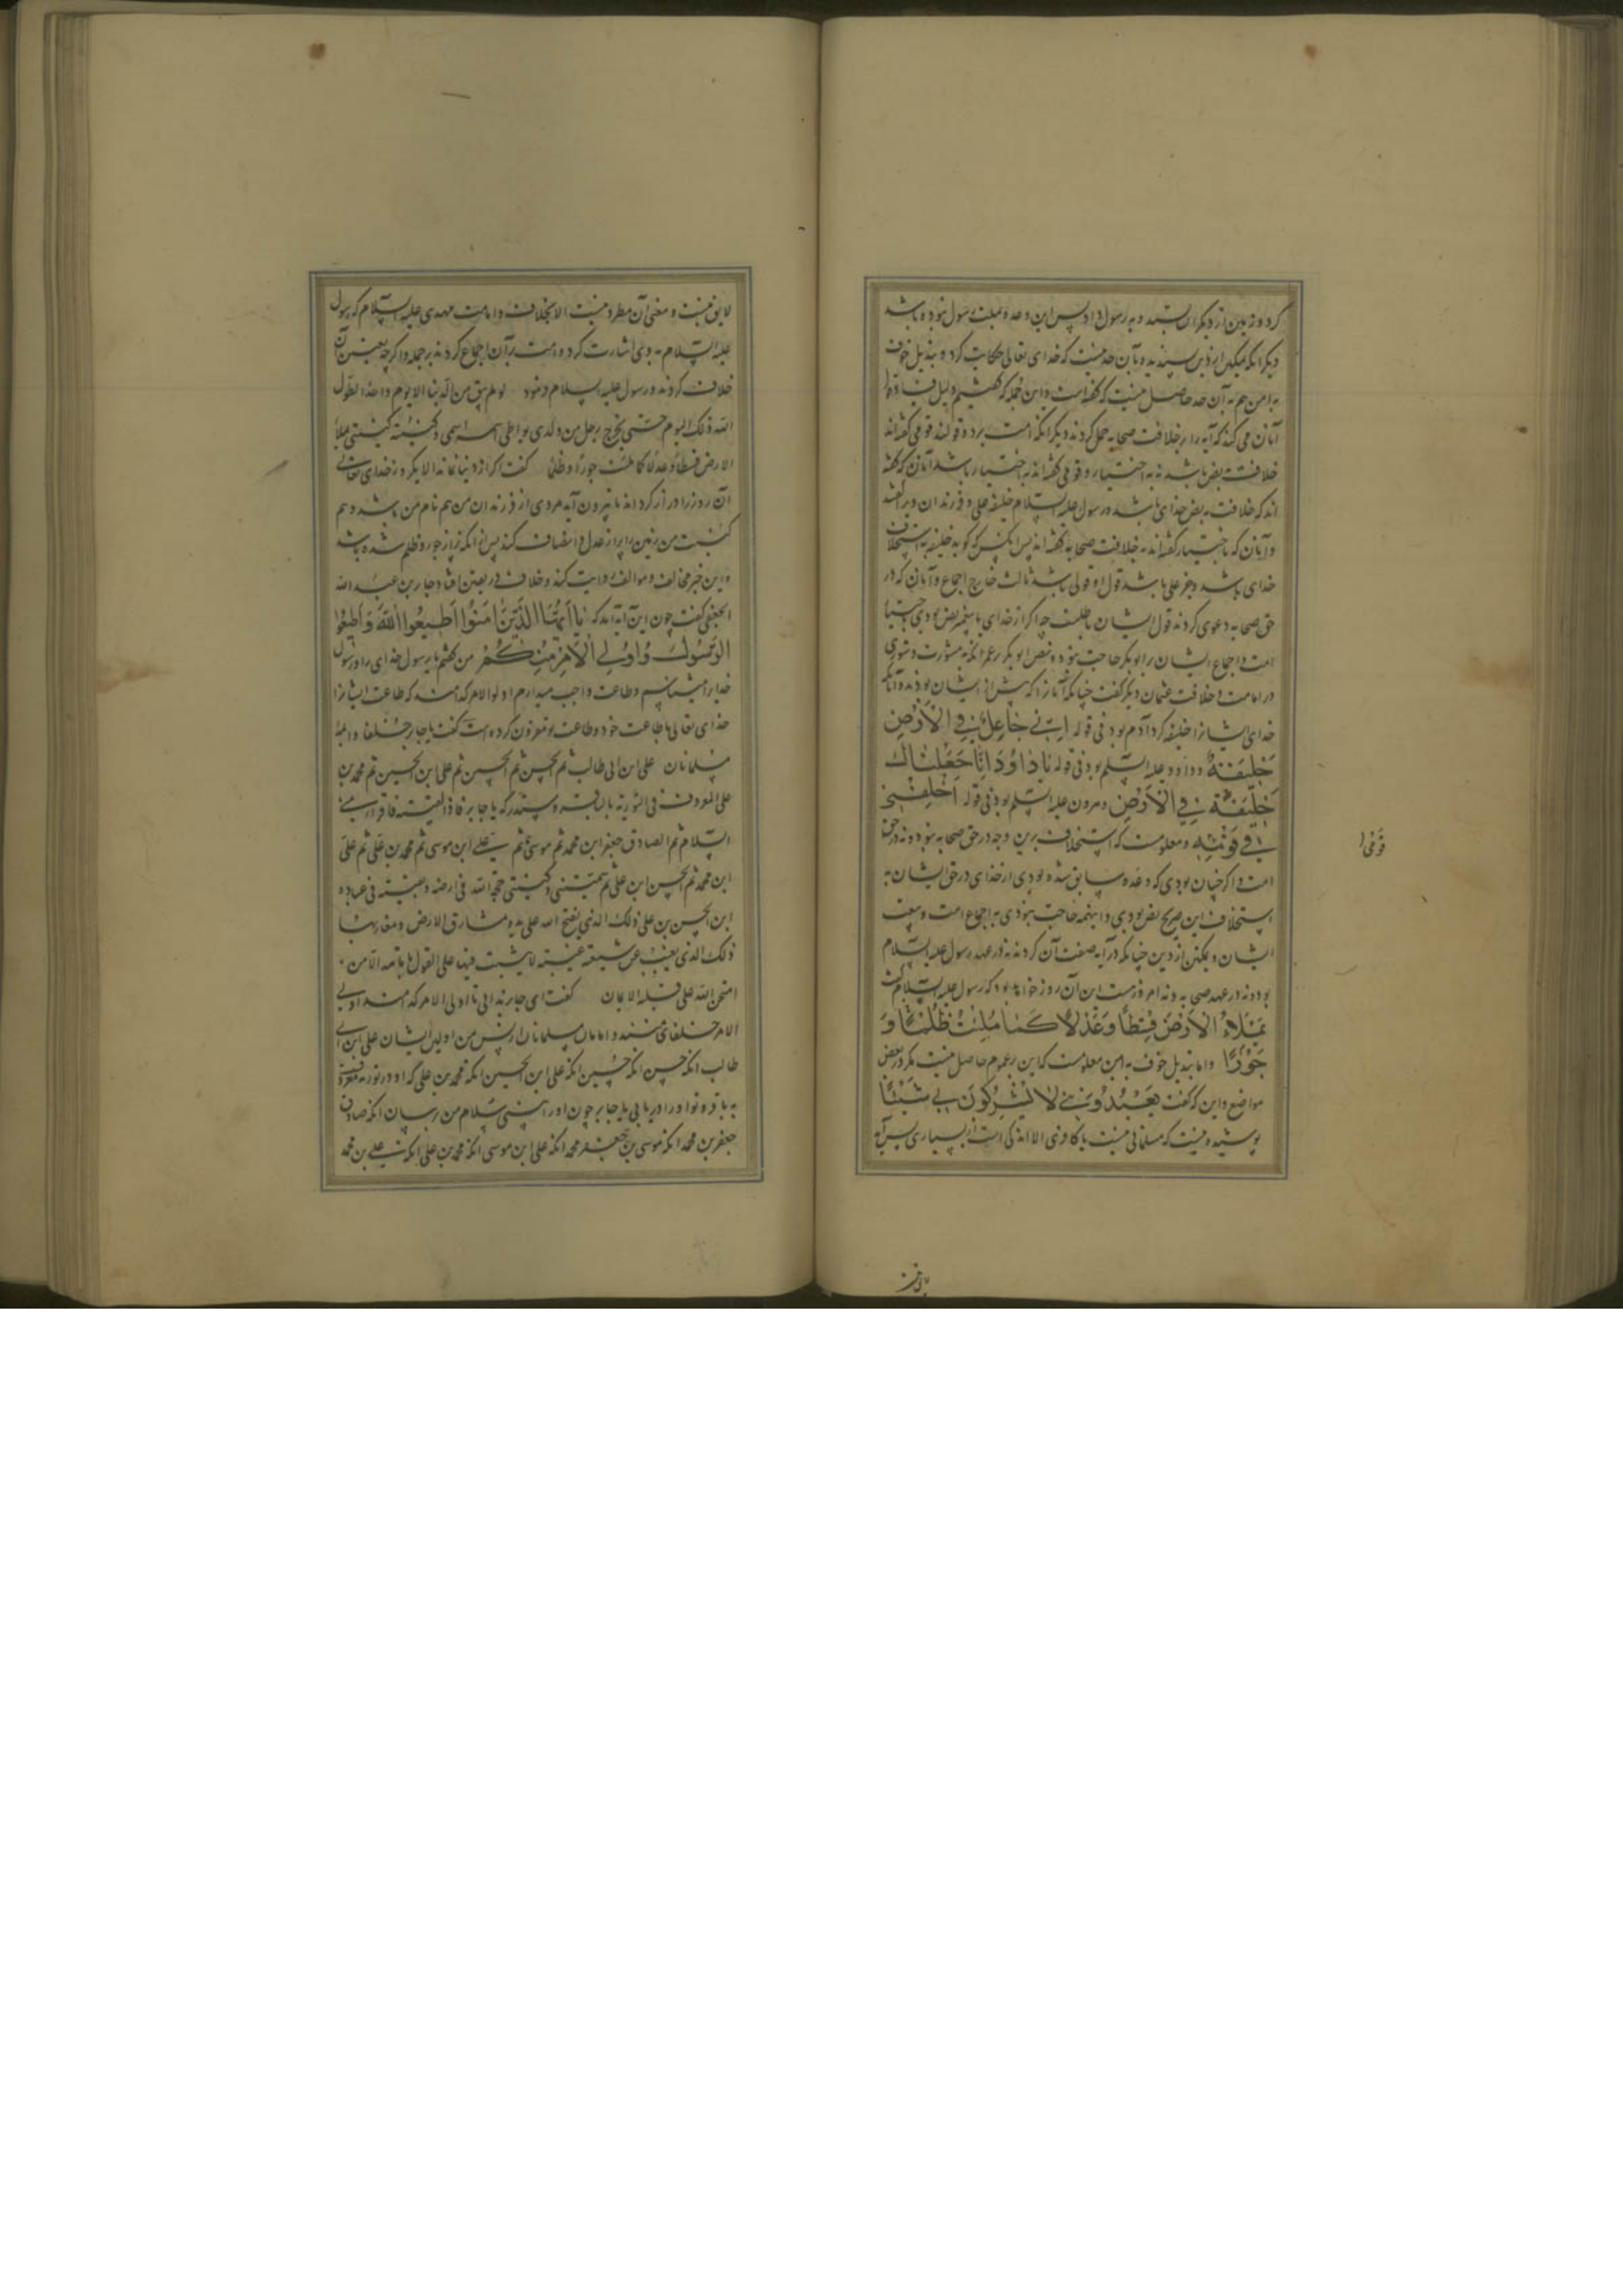 کرد و زمین از دیگران بستد و به رسول داد پس این وعده بملت رسول نبوده باشد
دیگر آنکه تمکین از دین پسندیده بآن حد نیست که خدای تعالی حکایت کرد و تبدیل خوف
به امن هم به آن حد حاصل نیست که گفته است و این جمله که گفتیم دلیل فساد قول
آنان می کند که آیه را بر خلافت صحابه حمل کردند دیگر آنکه امت بر دو قولند قومی گفته‌اند
خلافت به نص باشد نه به اختیار و قومی گفته‌اند به اختیار باشد آنان که گفته
اند که خلافت به نص خدای باشد و رسول علیه السلام خلیفه علی و فرزندان ویرا گفتند
و آنان که باختیار گفته‌اند به خلافت صحابه گفته‌اند پس آنکس که گوید خلیفه به استخلاف
خدای باشد و جز علی باشد قول او قولی باشد ثالث خارج اجماع و آنان که در
حق صحابه دعوی کردند قول ایشان باطلست چه اگر از خدای یا پیغمبر نص بودی به اختیار
امت و اجماع ایشان بر ابوبکر حاجت نبودی و نص ابوبکر بر عمر آنکه مشورت و شوری
در امامت و خلافت عثمان دیگر گفت چنانکه آنان را که پیش از ایشان بودند و آنانکه
خدای ایشانرا خلیفه کرد آدم بود فی قوله اِنّی جَاعِلٌ فِی الْاَرْضِ
خَلِیفَةً و داود علیه السلم بود فی قوله یَا دَاوُدُ اِنَّا جَعَلْنَاکَ
خَلِیفَةً فِی الْاَرْضِ و هرون علیه السلم بود فی قوله اخْلُفْنِی
فِی قَوْمِهِ و معلومست که استخلاف برین وجه در حق صحابه نبود و نه در حق
امت و اگر چنان بودی که وعده سابق شده بودی از خدای در حق ایشان به
استخلاف این صریح نص بودی و اینهمه حاجت نبودی به اجماع امت و بیعت
ایشان و تمکین از دین چنانکه در آیه صفت آن کردند نه در عهد رسول علیه السلام
بود و نه در عهد صحابه و نه امروز هست این آن روز خواهد بود که رسول علیه السلام گفت
یَمْلَاءُ الْاَرْضَ قِسْطًا وَ عَدْلًا کَمَا مُلِئَتْ ظُلْمًا وَ
جَوْرًا و اما تبدیل خوف به امن معلومست که این بر عموم حاصل نیست مگر در بعض
مواضع و این که گفت یَعْبُدُونَنِی لَا یُشْرِکُونَ بِی شَیْئًا
پوشیده نیست که مسلمانی نیست با کافری الا اندکی است از بسیاری پس آیه
قَوْمِی
لایق نیست و معنی آن مطرد نیست الا بخلافت و امامت مهدی علیه السلام که رسول
علیه السلام به وی اشارت کرده و امت بر آن اجماع کردند بر جمله و اگر چه در تعیین آن
خلاف کردند و رسول علیه السلام فرمود لو لم یبق من الدنیا الا یوم واحد لطول
الله ذلک الیوم حتی یخرج رجل من ولدی یواطی اسمه اسمی و کنیته کنیتی یملأ
الارض قسطا و عدلا کما ملئت جورا و ظلما گفت اگر از دنیا نماند الا یکروز خدای تعالی
آن روز را دراز گرداند تا بیرون آید مردی از فرزندان من هم نام من باشد و هم
کنیت من زمین را پر از عدل و انصاف کند پس از آنکه پر از جور و ظلم شده باشد
و این خبر مخالف و موالف روایت کنند و خلاف در تعیین افتاد جابر بن عبد الله
الجعفی گفت چون این آیه آمد که یَا اَیُّهَا الَّذِینَ اٰمَنُوا اَطِیعُوا اللّٰهَ وَ اَطِیعُوا
الرَّسُولَ وَ اُولِی الْاَمْرِ مِنْکُمْ من گفتم یا رسول خدای را و رسول
خدا را میشناسیم و طاعت واجب میدارم اولوا الامر کدامند که طاعت ایشانرا
خدای تعالی با طاعت خود و طاعت تو مقرون کرده است گفت یا جابر خلفا و ائمهٔ
مسلمانان علی ابن ابی طالب ثم الحسن ثم الحسین ثم علی ابن الحسین ثم محمد بن
علی المعروف فی التوریة بالباقر و ستدرکه یا جابر فاذا لقیته فاقرأه منی
السلام ثم الصادق جعفر ابن محمد ثم موسی ثم علی ابن موسی ثم محمد بن علی ثم علی
ابن محمد ثم الحسن ابن علی ثم سمیی و کنیتی حجة الله فی ارضه و بقیته فی عباده
ابن الحسن بن علی ذلک الذی یفتح الله علی یدیه مشارق الارض و مغاربها
ذلک الذی یغیب عن شیعته غیبة لا یثبت فیها علی القول بامامته الا من
امتحن الله علی قلبه الایمان گفت ای جابر بدانی تا اولی الامر که هستند اولی
الامر خلفای منند و امامان مسلمانان از پس من اولین ایشان علی ابن ابی
طالب آنگه حسن آنگه حسین آنگه علی ابن الحسین آنگه محمد بن علی که او در توریه معروفست
به باقر و تو او را دریابی یا جابر چون او را بینی سلام من برسان آنگه صادق
جعفر بن محمد آنگه موسی بن جعفر آنگه علی ابن موسی آنگه محمد بن علی آنگه علی بن محمد